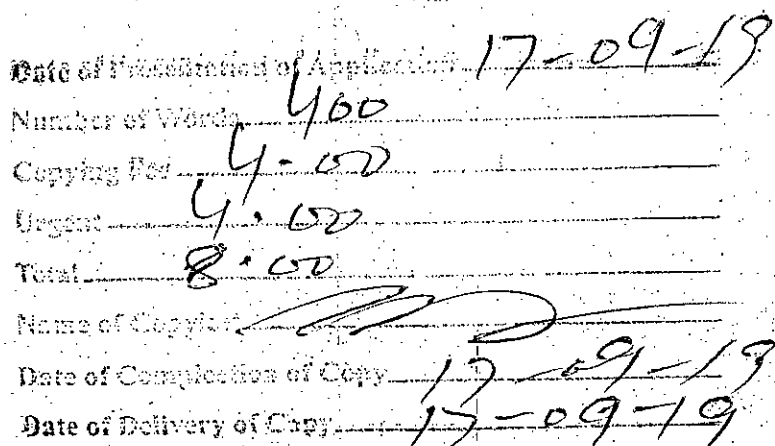 Date of Presentation of Application 17-09-19
Number of Words 400
Copying Fee 4.00
Urgent 4.00
Total 8.00
Name of Copyist
Date of Complection of Copy 17-09-19
Date of Delivery of Copy 17-09-19